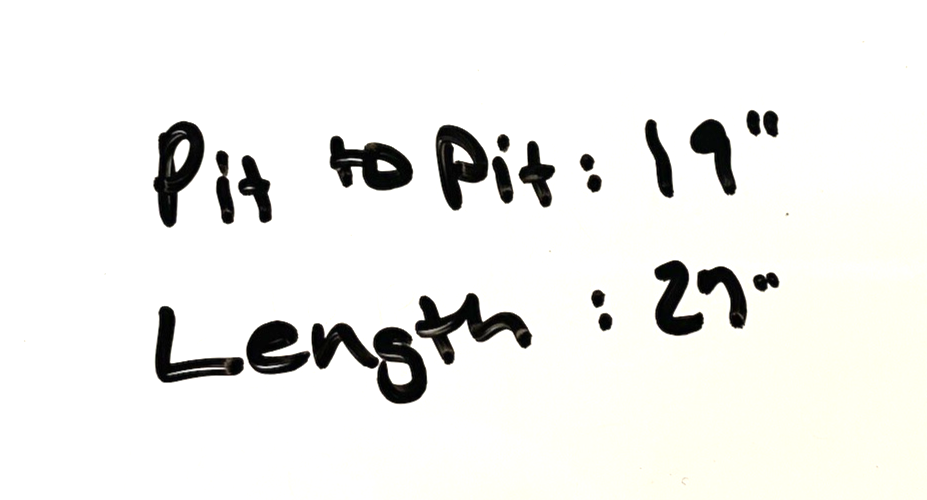 Pit to Pit: 19"
Length: 27"